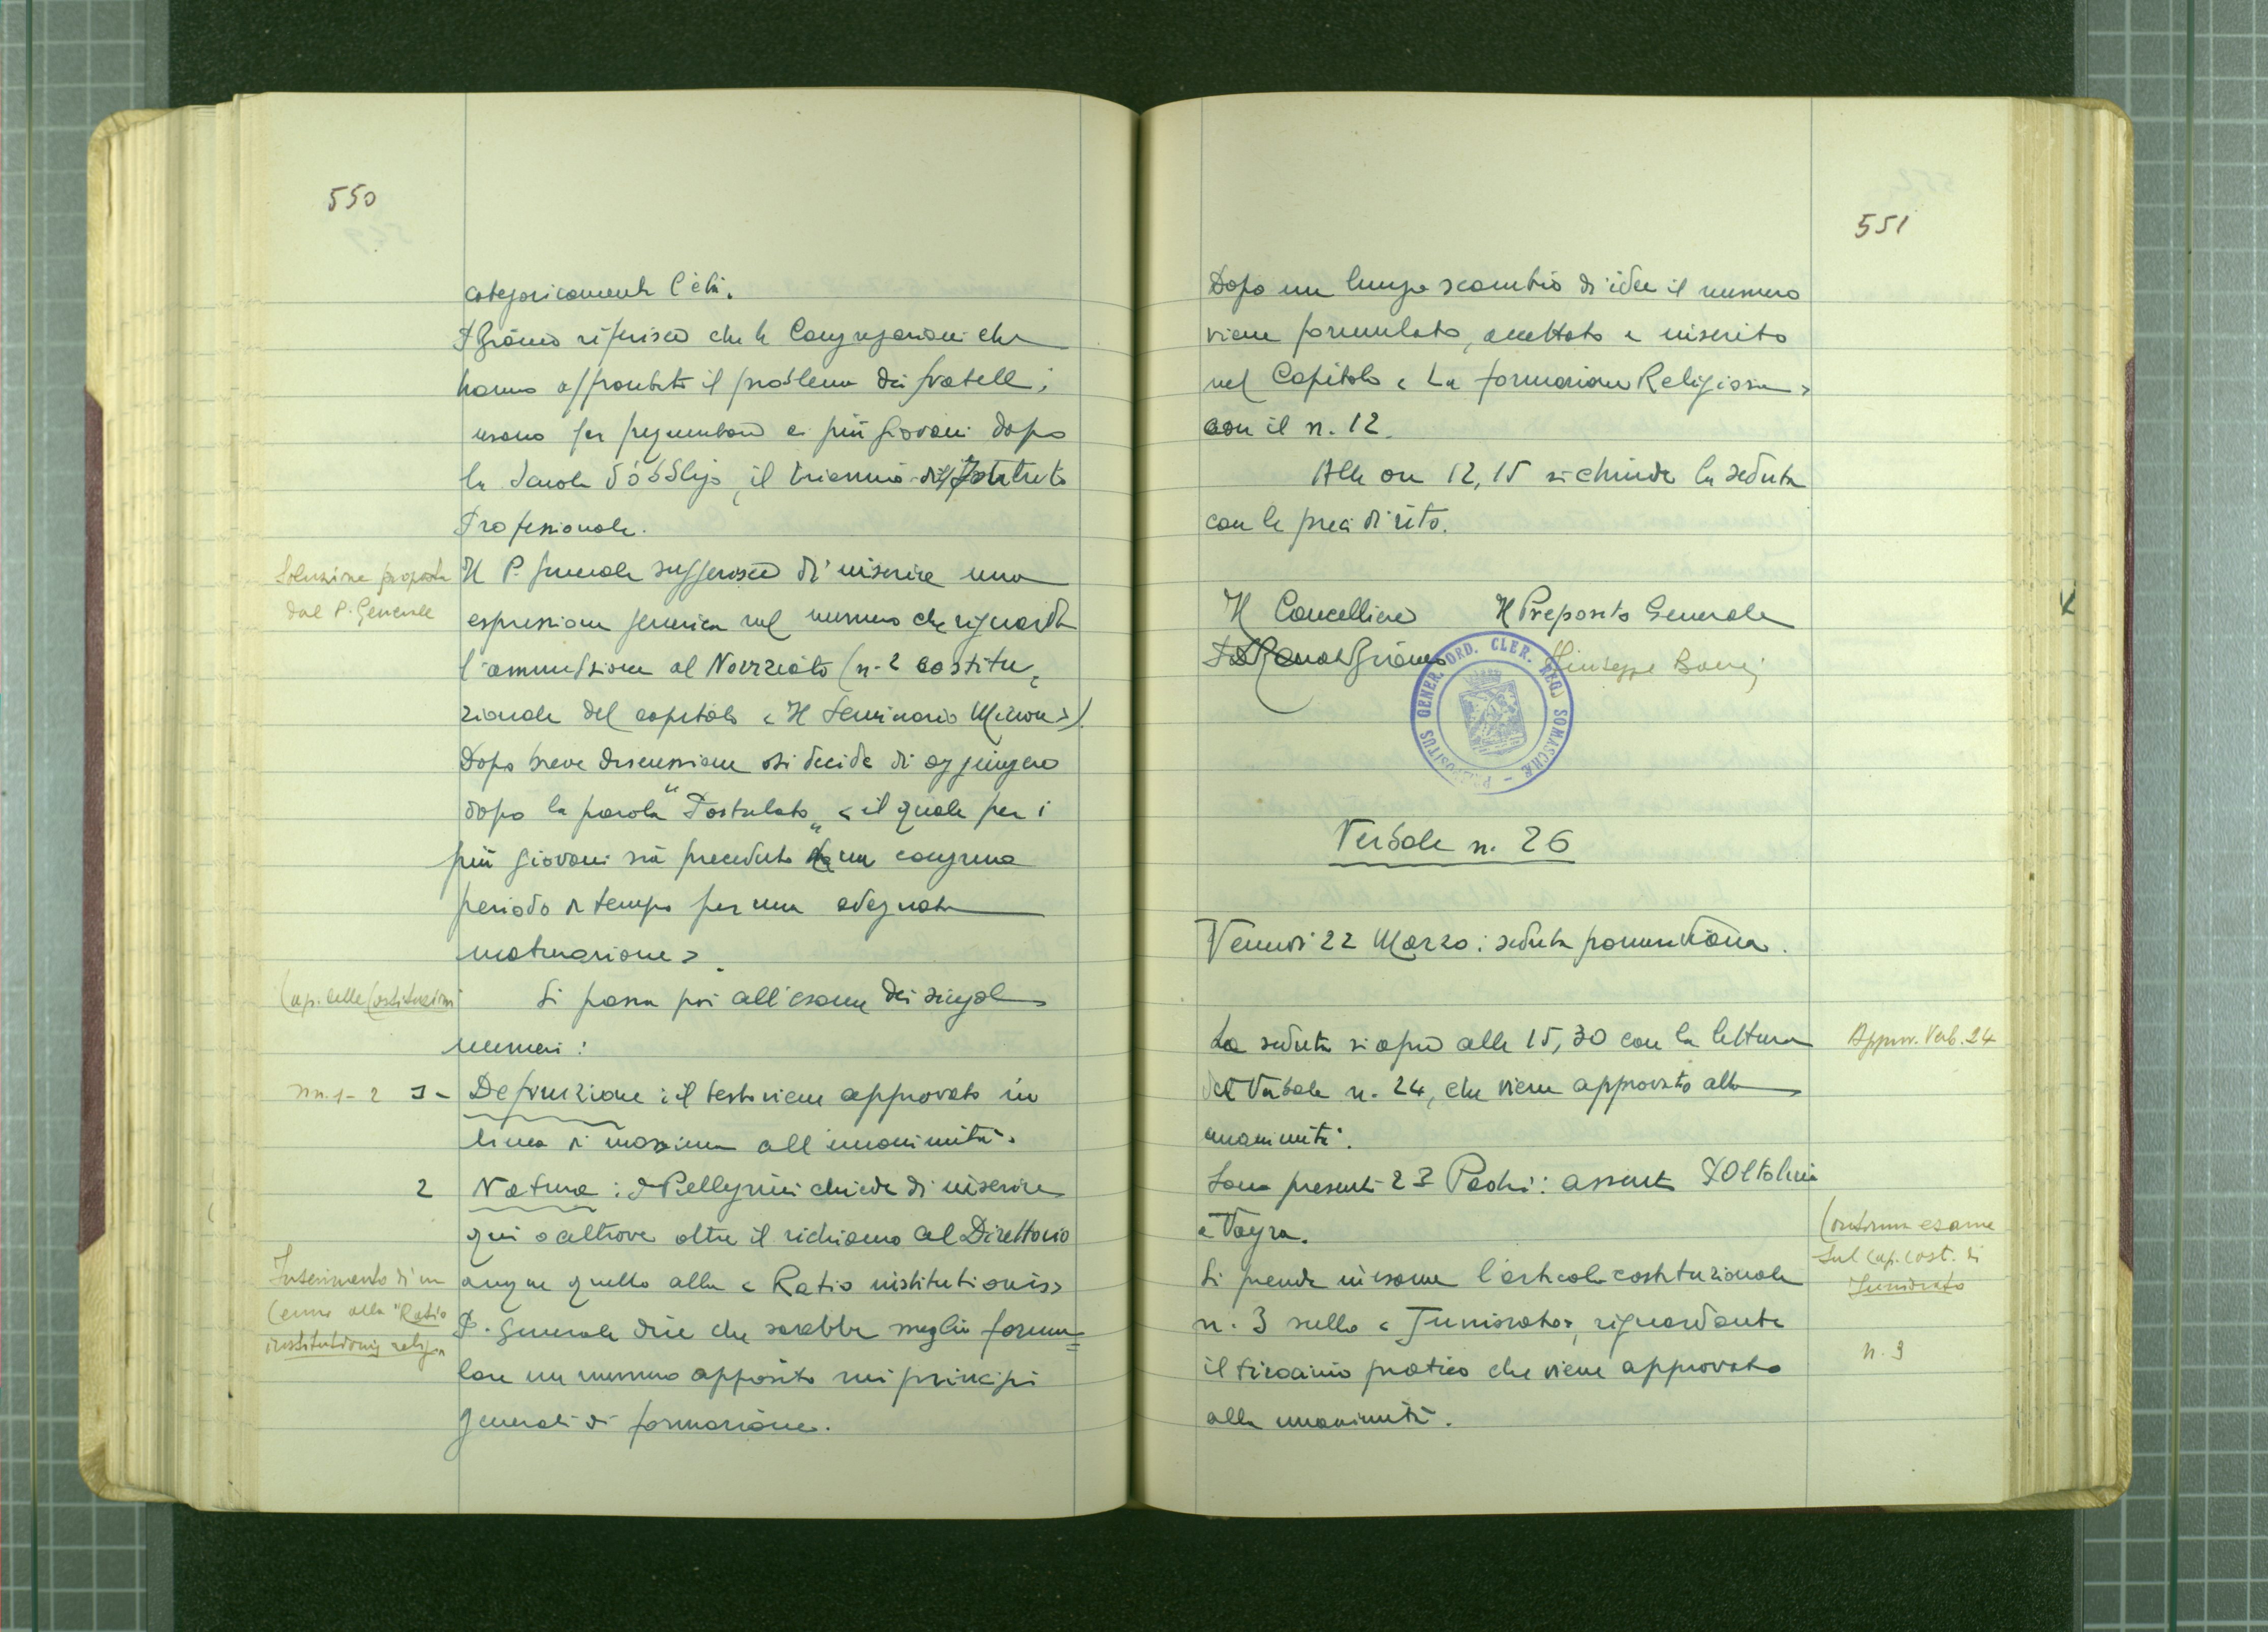 550
categoricamente l'età.
P. Griseri riferisce che le Congregazioni che
hanno affrontato il problema dei fratelli
usano far frequentare ai più giovani dopo
la Scuola d'obbligo, il triennio dell'Istituto
Professionale.
Soluzione proposta
dal P. Generale
Il P. Generale suggerisce di inserire una
espressione generica nel numero che riguarda
l'ammissione al Noviziato (n. 2 costitu=
zionale del capitolo «Il Seminario Minore»).
Dopo breve discussione si decide di aggiungere
dopo la parola "Postulato" «il quale per i
più giovani sia preceduto da un congruo
periodo di tempo per una adeguata
maturazione».
Cap. delle Costituzioni
Si passa poi all'esame dei singoli
numeri:
nn. 1-2
1- Definizione: il testo viene approvato in
linea di massima all'unanimità.
2 Natura: P. Pellegrini chiede di inserire
qui o altrove oltre il richiamo al Direttorio
Inserimento di un
Cenno alla "Ratio
institutionis relig."
anche quello alla «Ratio institutionis»
P. Generale dice che sarebbe meglio formu=
lare un numero apposito nei principi
generali di formazione.
551
Dopo un lungo scambio di idee il numero
viene formulato, accettato e inserito
nel Capitolo «La formazione Religiosa»
con il n. 12.
Alle ore 12,15 si chiude la seduta
con le preci di rito.
Il Cancelliere Il Preposito Generale
Giuseppe
PRAEPOSITUS GENER. ORD. CLER. REG. SOMASCHAE
Verbale n. 26
Venerdì 22 Marzo: seduta pomeridiana.
La seduta si apre alle 15,30 con la lettura
Approv. Verb. 24
del Verbale n. 24, che viene approvato alla
unanimità.
Sono presenti 23 Padri: assenti P. Oltolini
e Vayra.
Continua esame
sul cap. cost. di
Juniorato
Si prende in esame l'articolo costituzionale
n. 3 sullo «Juniorato», riguardante
n. 3
il tirocinio pratico che viene approvato
alla unanimità.